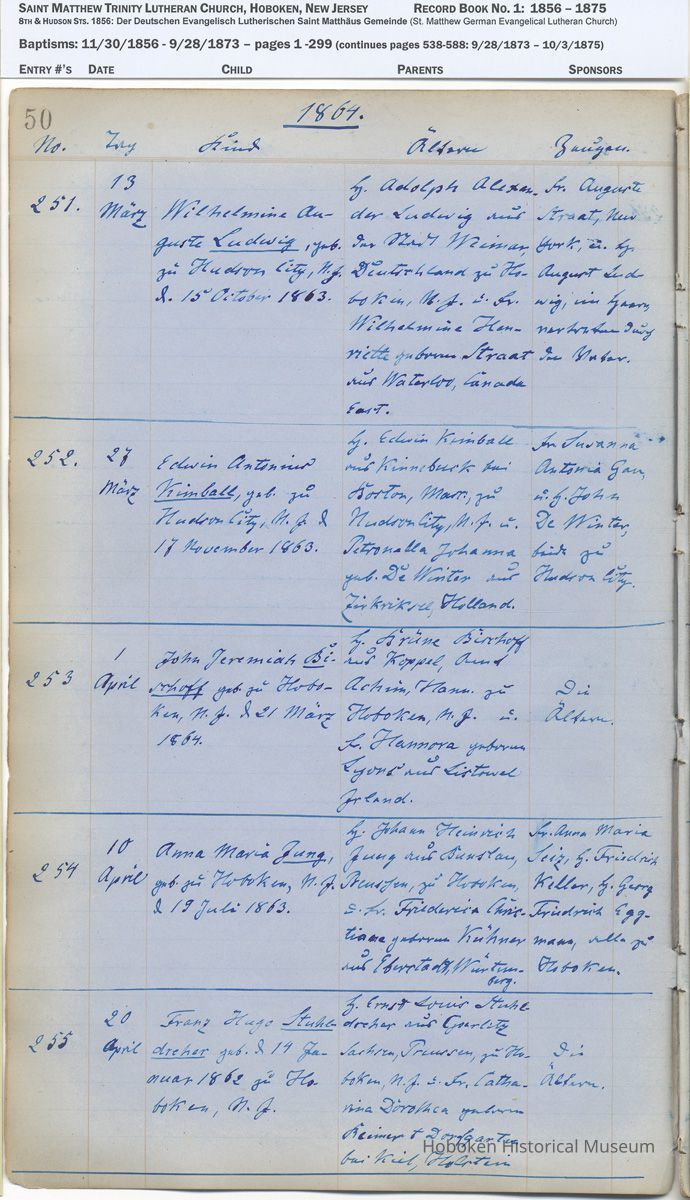 SAINT MATTHEW TRINITY LUTHERAN CHURCH, HOBOKEN, NEW JERSEY RECORD BOOK NO. 1: 1856 – 1875
8TH & HUDSON STS. 1856: Der Deutschen Evangelisch Lutherischen Saint Matthäus Gemeinde (St. Matthew German Evangelical Lutheran Church)
Baptisms: 11/30/1856 - 9/28/1873 – pages 1 -299 (continues pages 538-588: 9/28/1873 – 10/3/1875)
ENTRY #'S DATE CHILD PARENTS SPONSORS
50 1864.
No. Tag Kind Ältern Zeugen.
251.
13
März
Wilhelmine Au-
guste Ludwig, geb.
zu Hudson City, N.J.
d. 15 October 1863.
H. Adolph Alexan-
der Ludwig aus
der Stadt Weimar,
Deutschland zu Ho-
boken, N. J. u. Fr.
Wilhelmine Hen-
riette geboren Straat
aus Waterloo, Canada
East.
Fr. Auguste
Straat, New
York, u. H.
August Lud-
wig, im
vertreten durch
den Vater.
252.
27
März
Edwin Antonius
Kimball, geb. zu
Hudson City, N. J. d
17 November 1863.
H. Edwin Kimball
aus bei
Boston, Mass., zu
Hudson City, N. J. u.
Petronella Johanna
geb. De Winter aus
Holland.
Fr. Susanna
Antonia
u. H. John
De Winter,
beide zu
Hudson City.
253
1
April
John Jeremiah Bi-
schoff geb. zu Hobo-
ken, N. J. d 21 März
1864.
H. Brüne Bischoff
aus Koppel, Amd
Achim, Hann. zu
Hoboken, N. J. u.
Fr. Hannora geboren
Lyons aus Listowel
Irland.
Die
Ältern.
254
10
April
Anna Maria Jung,
geb. zu Hoboken, N. J.
d 19 Juli 1863.
H. Johann Heinrich
Jung aus Bunslau,
Preussen, zu Hoboken,
u. Fr. Friederica Chris-
tiane geboren Kühner
aus Eberstadt, Würtem-
berg.
Fr. Anna Maria
Seiz, H. Friedrich
Keller, H. Georg
Friedrich Egg-
mann, alle zu
Hoboken.
255
20
April
Franz Hugo Stuhl-
dreher geb. d 14 Ja-
nuar 1862 zu Ho-
boken, N. J.
H. Ernst Louis Stuhl-
dreher aus Goerlitz
Sachsen, Preussen, zu Ho-
boken, N. J. u. Fr. Catha-
rina Dorothea geboren
Reimer
bei Kiel, Holstein
Die
Ältern.
Hoboken Historical Museum